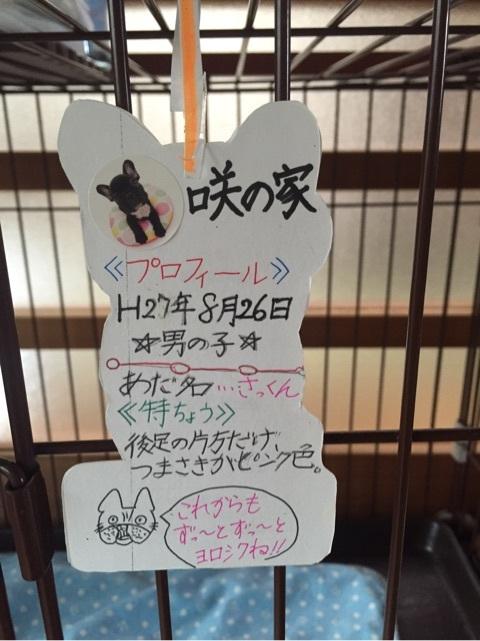 咲の家
《プロフィール》
H27年8月26日
☆男の子☆
あだ名…さっくん
《特ちょう》
後足の片方だけ、
つまさきがピンク色。
これからも
ずっ〜とずっ〜と
ヨロシクね!!